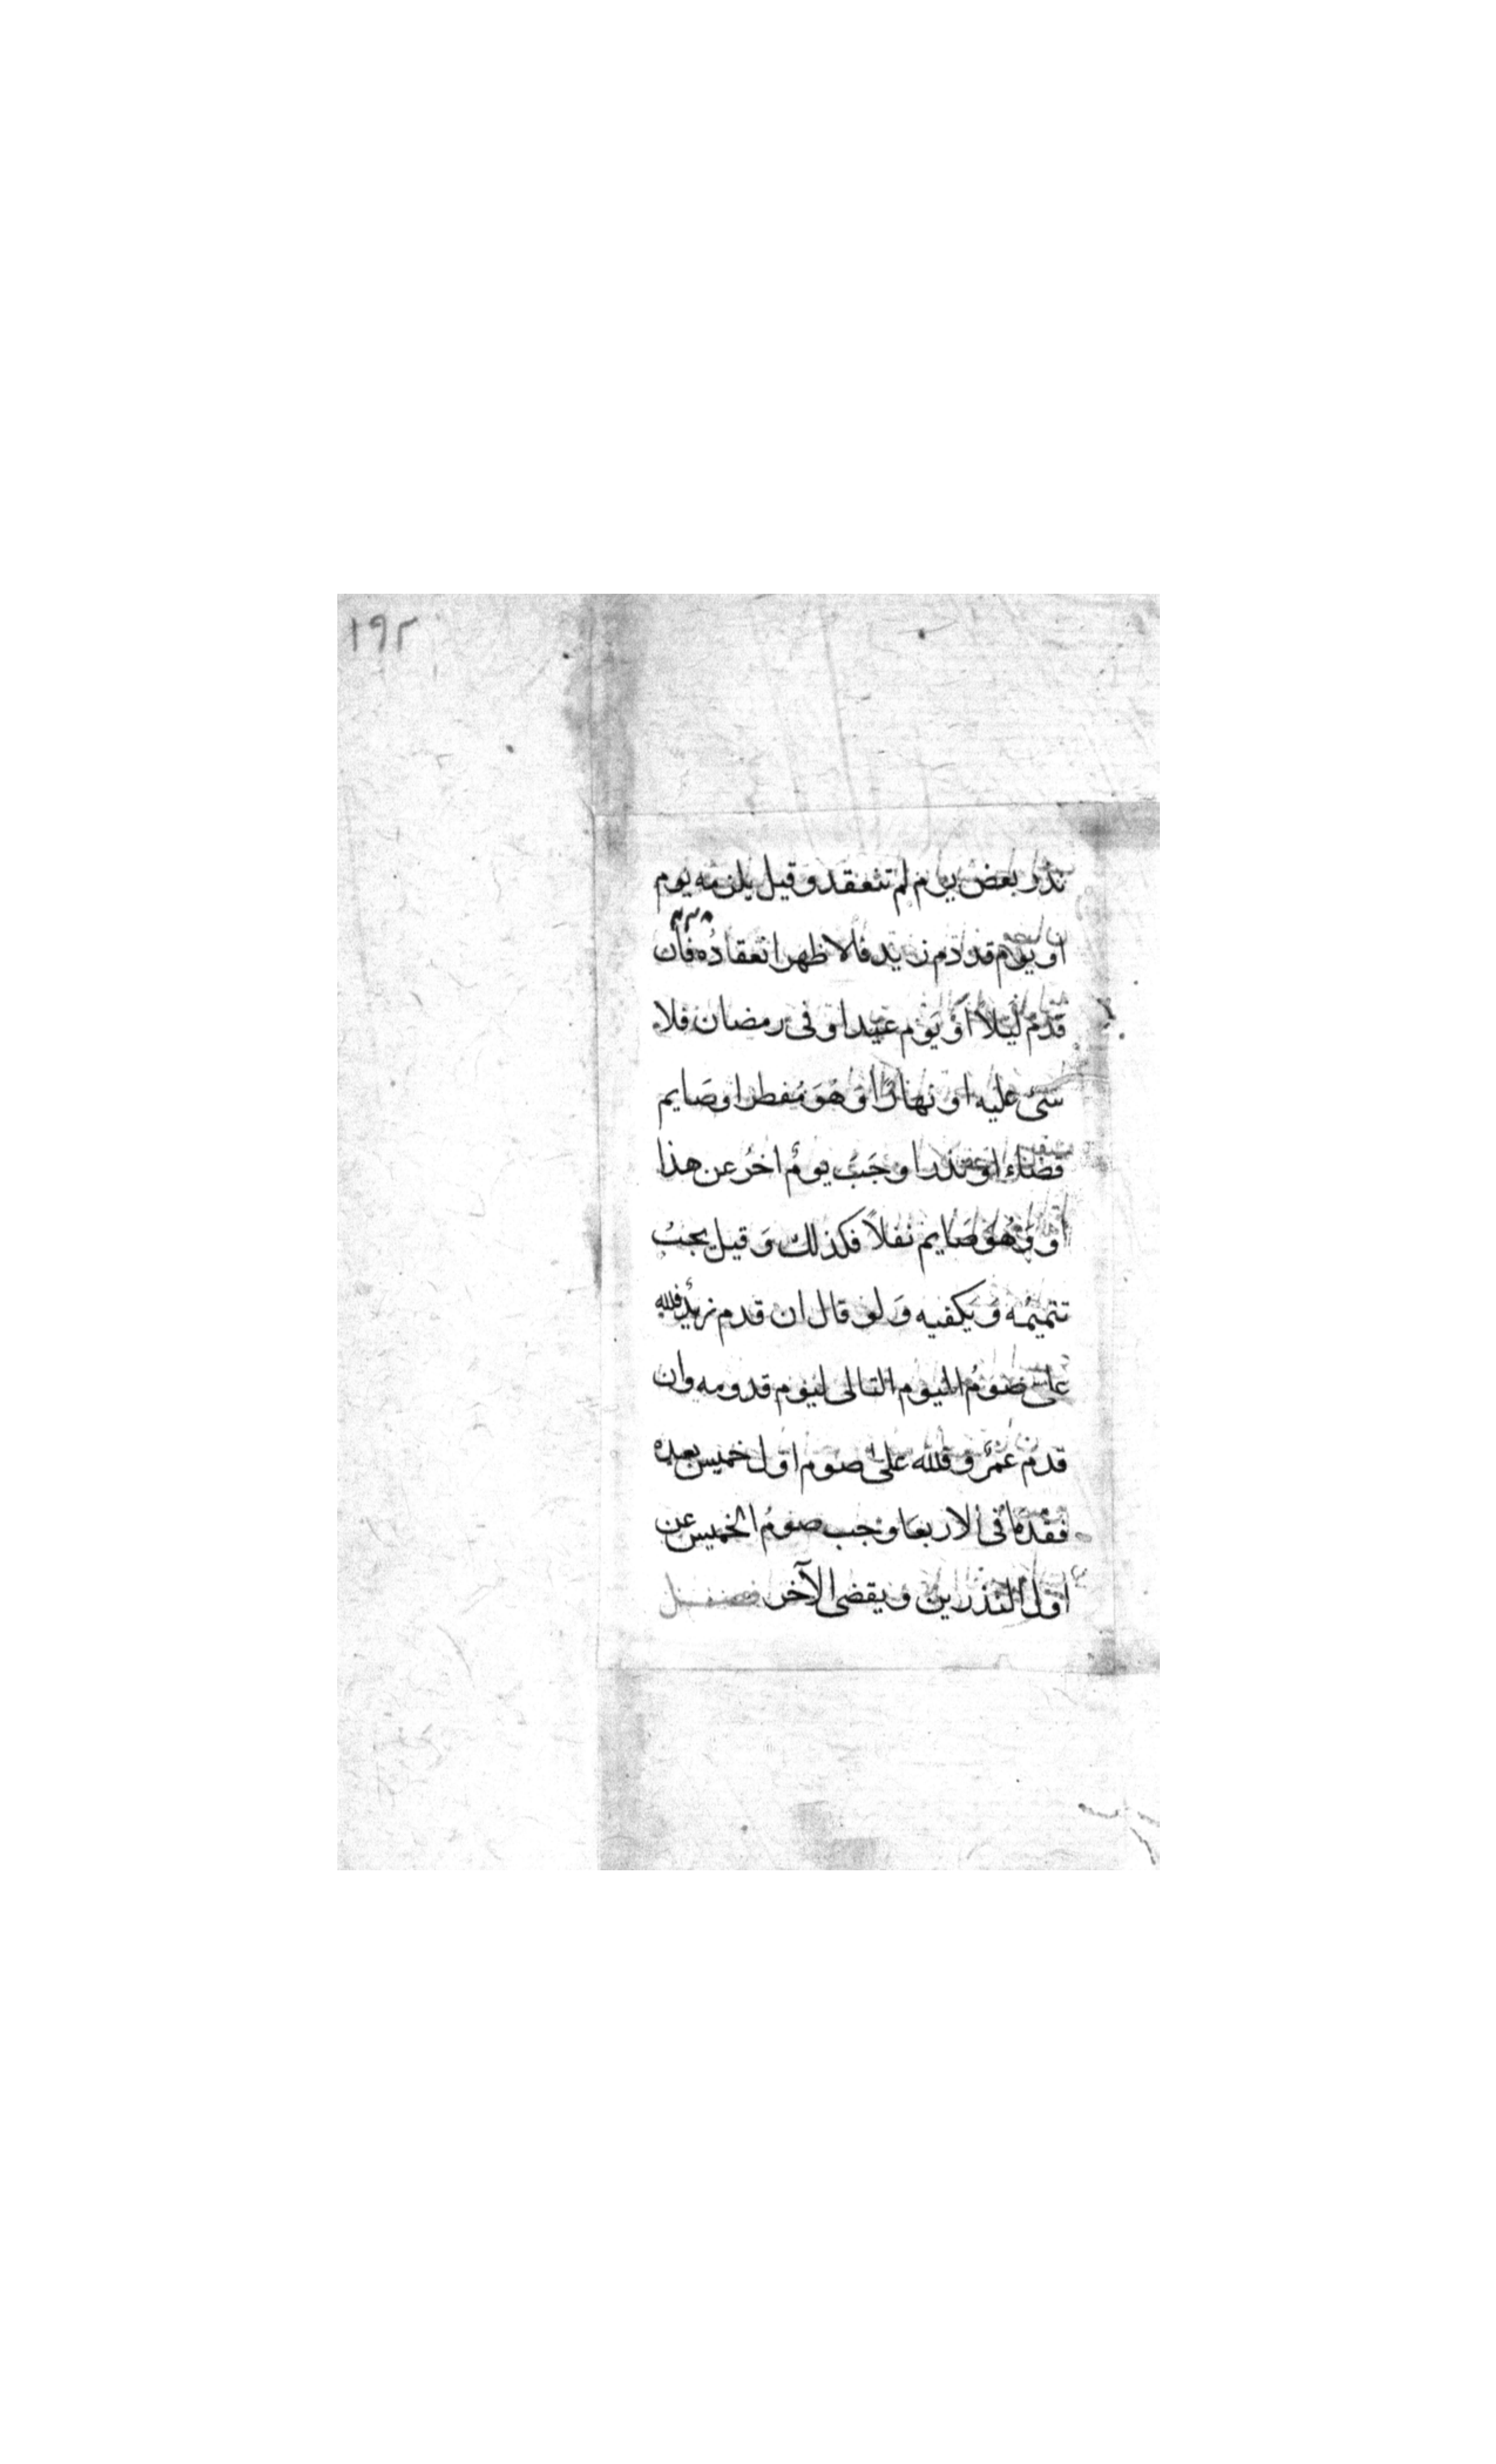 ١٩٢
نذر بعض يوم لم تنعقد وقيل يلزمه يوم
او يوم قدوم زيد فالاظهر انعقادُه فان
قدم لَيلاً اوْ يَوْم عيد او فى رمضان فلا
شئ عليه او نهارًا وَهُوَ مُفطر او صَايم
قضاءً او نذرا وجَبَ يومٌ اخرُ عن هذا
او وَهُوَ صَايم نفلاً فكذلك وَقيل يجبُ
تتميمُه وَيكفيه وَلو قال ان قدم زيدٌ فلله
على صومُ اليوم التالى ليوم قدومه وان
قدم عَمرٌو فلله علىّ صوم اول خميس بعده
فقدمَا فى الاربعَا وجب صومُ الخميس عن
اول النذرين ويقضى الآخر فصل